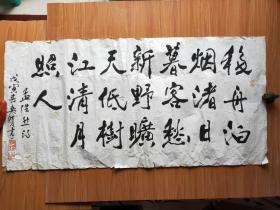 移舟泊
烟渚日
暮客愁
新野曠
天低樹
江清月
照人
孟浩然诗
戊寅